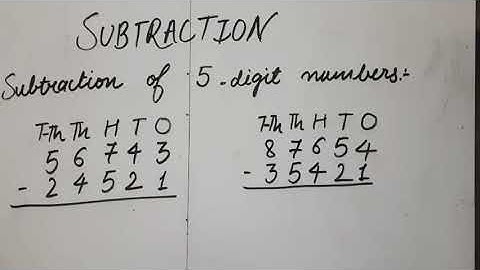 SUBTRACTION
Subtraction of 5-digit numbers:-
T-Th Th H T O
5 6 7 4 3
- 2 4 5 2 1
T-Th Th H T O
8 7 6 5 4
- 3 5 4 2 1